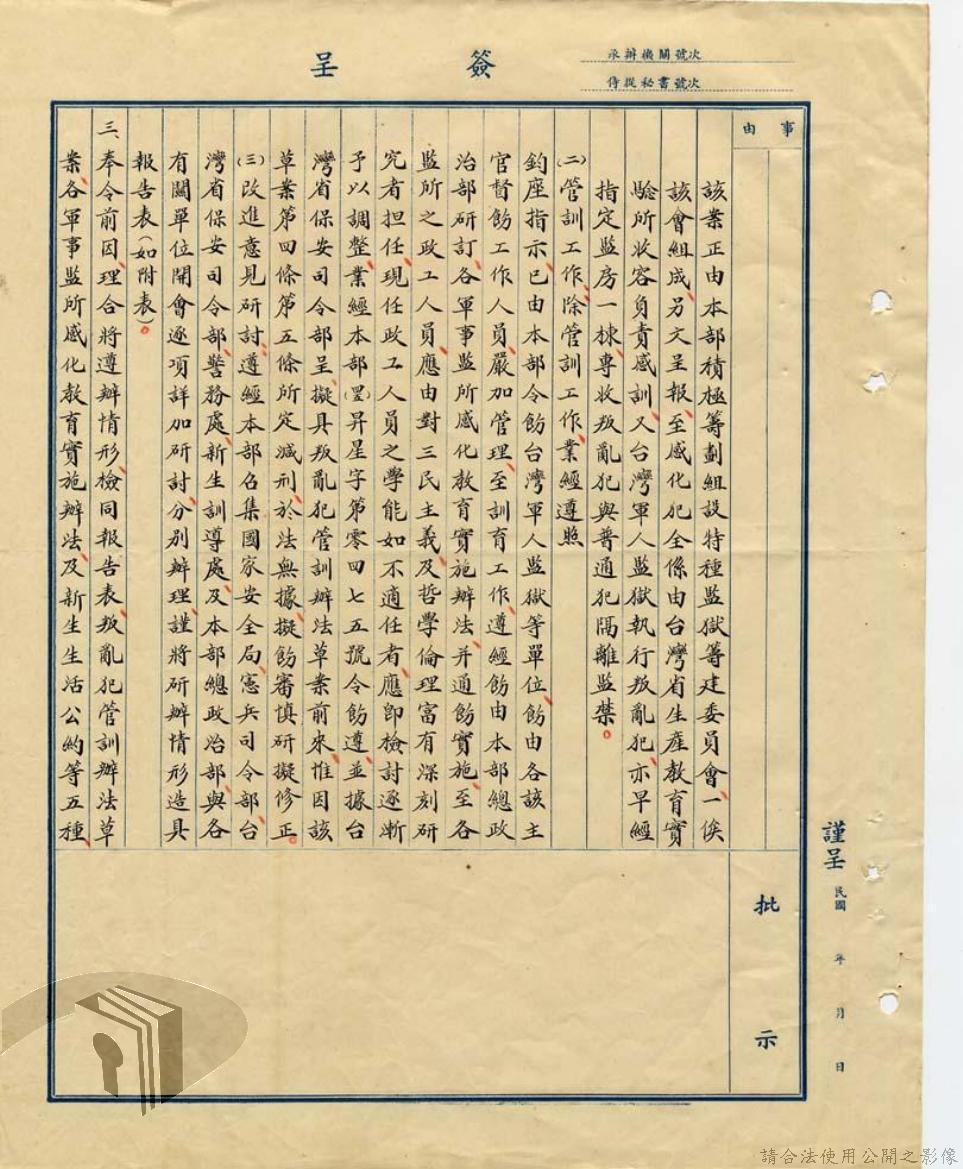 簽呈
承辦機關號次
侍從秘書號次
事由
該業正由本部積極籌劃組設特種監獄籌建委員會、一俟
該會組成、另文呈報、至感化犯全係由台灣省生產教育實
驗所收容負責感訓、又台灣軍人監獄執行叛亂犯、亦早經
指定監房一棟、專收叛亂犯與普通犯隔離監禁。
(二)管訓工作、除管訓工作、業經遵照
鈞座指示、已由本部令飭台灣軍人監獄等單位、飭由各該主
官督飭工作人員、嚴加管理、至訓育工作、遵經飭由本部總政
治部研訂、各軍事監所感化教育實施辦法、并通飭實施、至各
監所之政工人員、應由對三民主義、及哲學倫理富有深刻研
究者担任、現任政工人員之學能如不適任者、應即檢討逐漸
予以調整、業經本部(罡)昇星字第零四七五號令飭遵、並據台
灣省保安司令部呈、擬具叛亂犯管訓辦法草案前來、惟因該
草案第四條第五條所定減刑、於法無據、擬飭審慎研擬修正。
(三)改進意見研討、遵經本部召集國家安全局、憲兵司令部、台
灣省保安司令部、警務處、新生訓導處、及本部總政治部、與各
有關單位開會逐項詳加研討、分別辦理、謹將研辦情形造具
報告表(如附表)。
三、奉令前因、理合將遵辦情形、檢同報告表、叛亂犯管訓辦法草
案、各軍事監所感化教育實施辦法、及新生生活公約等五種、
批示
謹呈
民國 年 月 日
請合法使用公開之影像